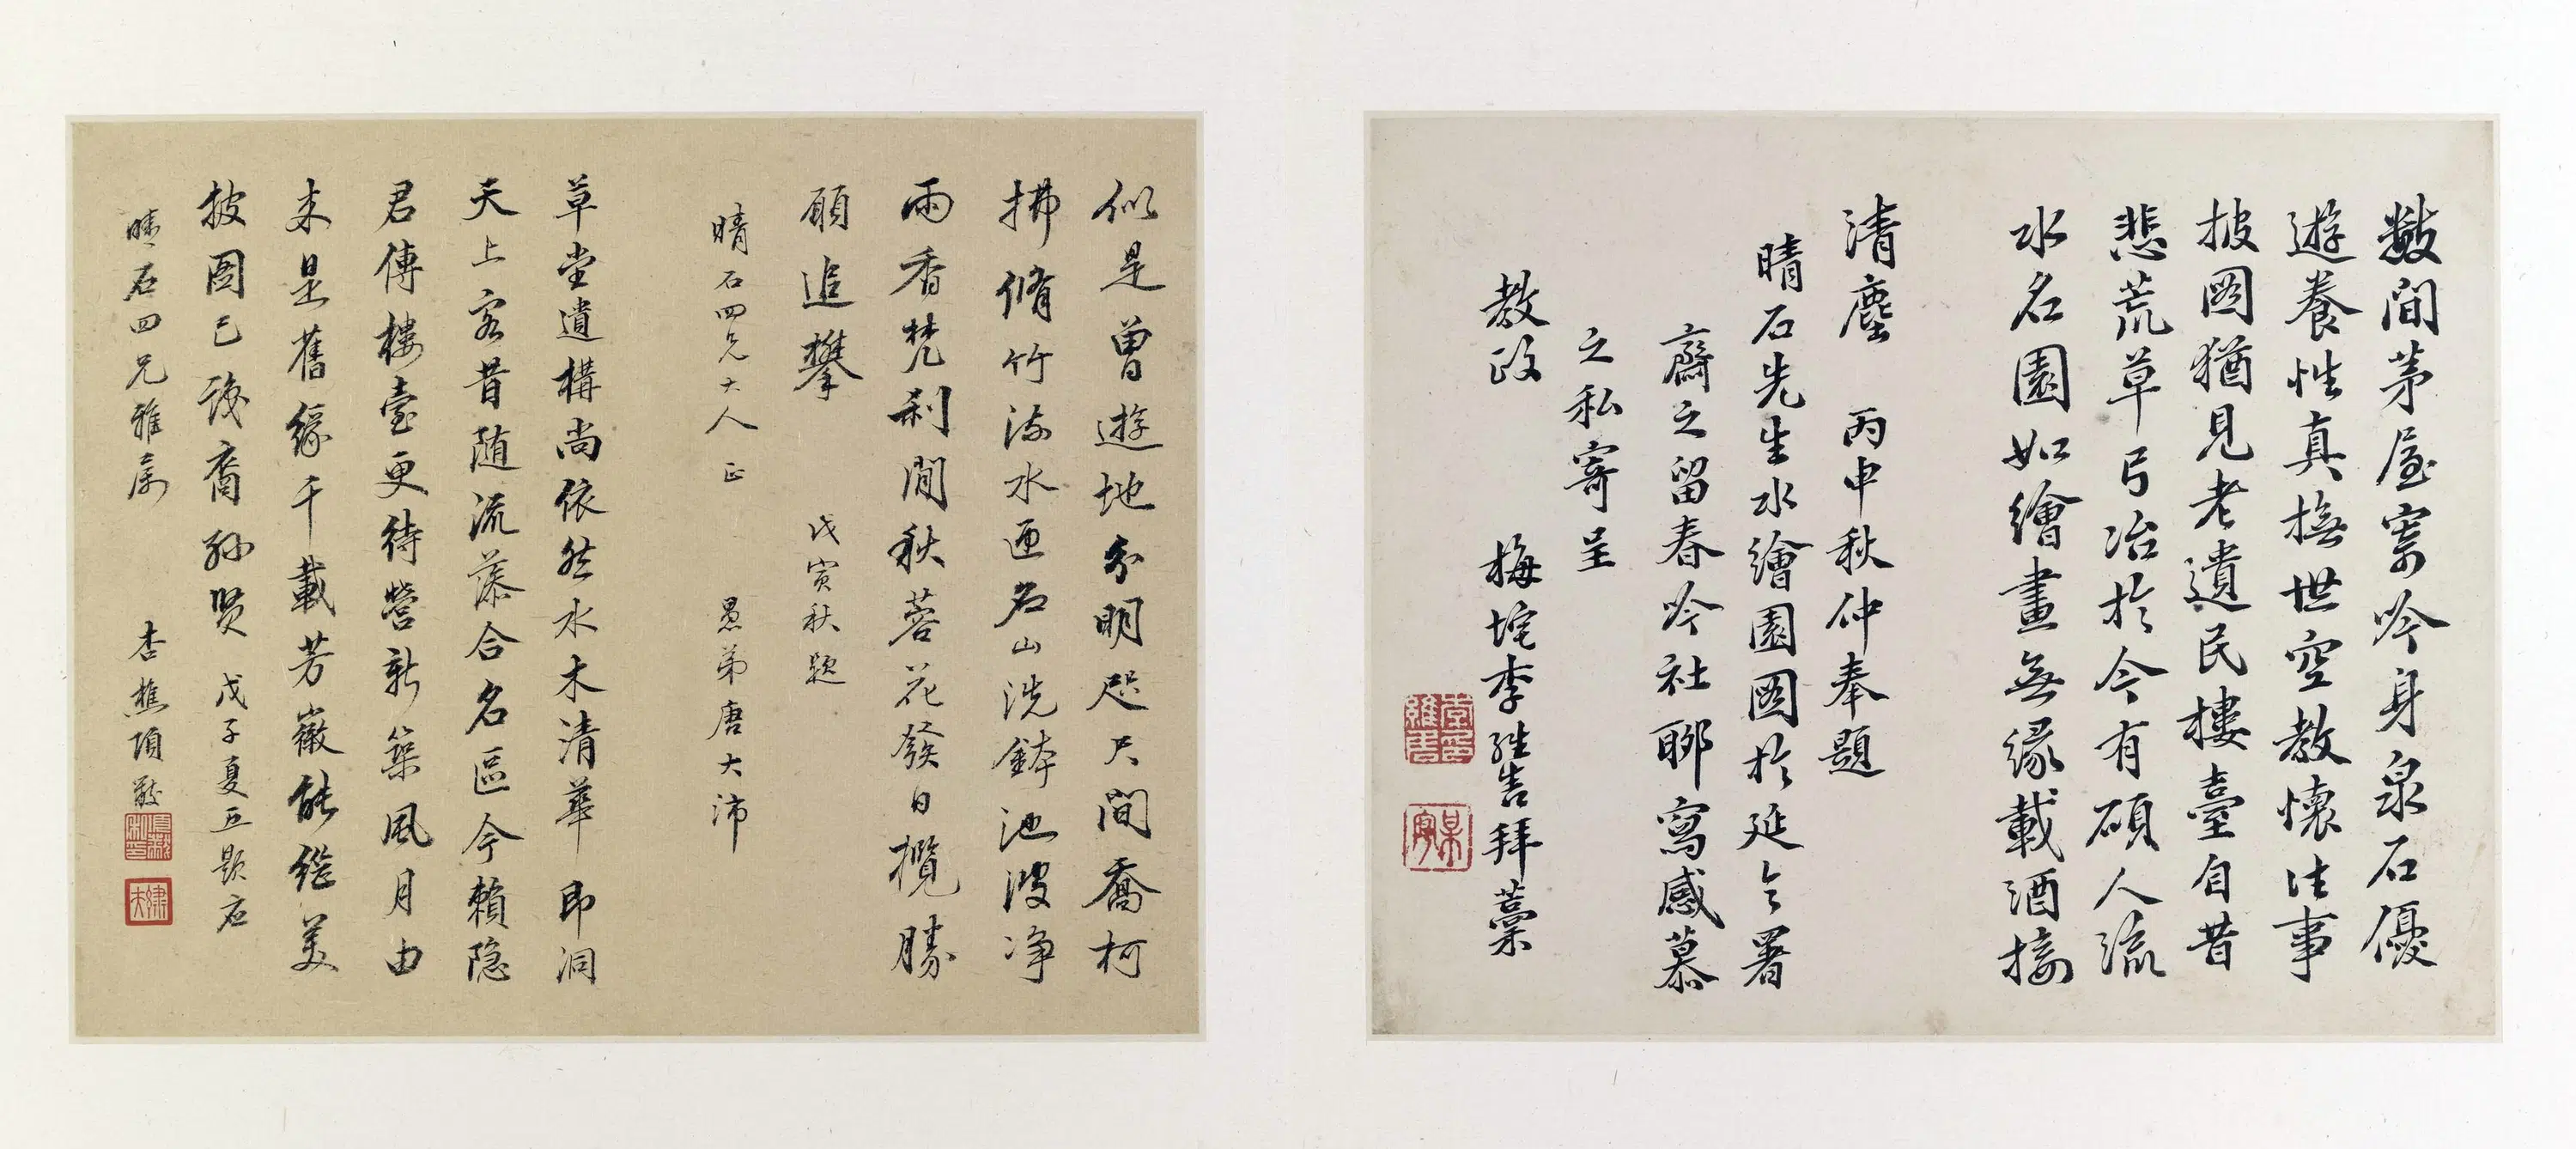 數間茅屋寄吟身泉石優
遊養性真撫世空教懷往事
披圖猶見老遺民樓臺自昔
悲荒草弓冶於今有碩人流
水名園如繪畫無緣載酒接
清塵 丙申秋仲奉題
晴石先生水繪園圖於延令署
齋之留春吟社聊寫感慕
之私寄呈
教政 梅垞李維拜藁
似是曾遊地分明咫尺間喬柯
拂脩竹流水匝名山洗鉢池波淨
雨香梵剎閒秋蓉花發日攬勝
願追攀 戊寅秋題
晴石四兄大人正 愚弟唐大沛
草堂遺構尚依然水木清華即洞
天上客昔隨流藻合名區今賴隐
君傳樓臺更待營新築風月由
来是舊緣千載芳徽能繼美
披圖已識裔孫賢 戊子夏五題应
晴石四兄雅属 杏樵項